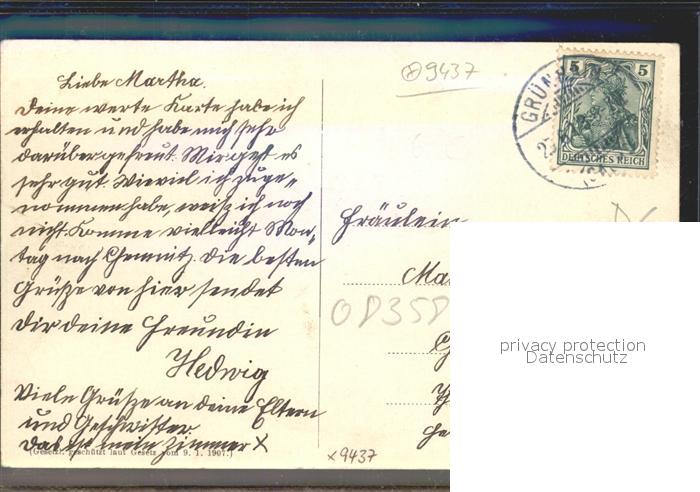 Liebe Martha.
Deine werte Karte habe ich
erhalten und habe mich sehr
darüber gefreut. Mir geht es
sehr gut. Wieviel ich zuge„
nommen habe, weiß ich noch
nicht. Komme vielleicht Mon„
tag nach Chemnitz. Die besten
Grüße von hier sendet
Dir deine Freundin
Hedwig
Viele Grüße an deine Eltern
und Geschwister.
Das ist mein Zimmer X
(Gesetzl. geschützt laut Gesetz vom 9. 1. 1907.)
9437
GRÜNHAIN
5 5
DEUTSCHES REICH
Fräulein
Ma
OP35P
x9437
privacy protection
Datenschutz